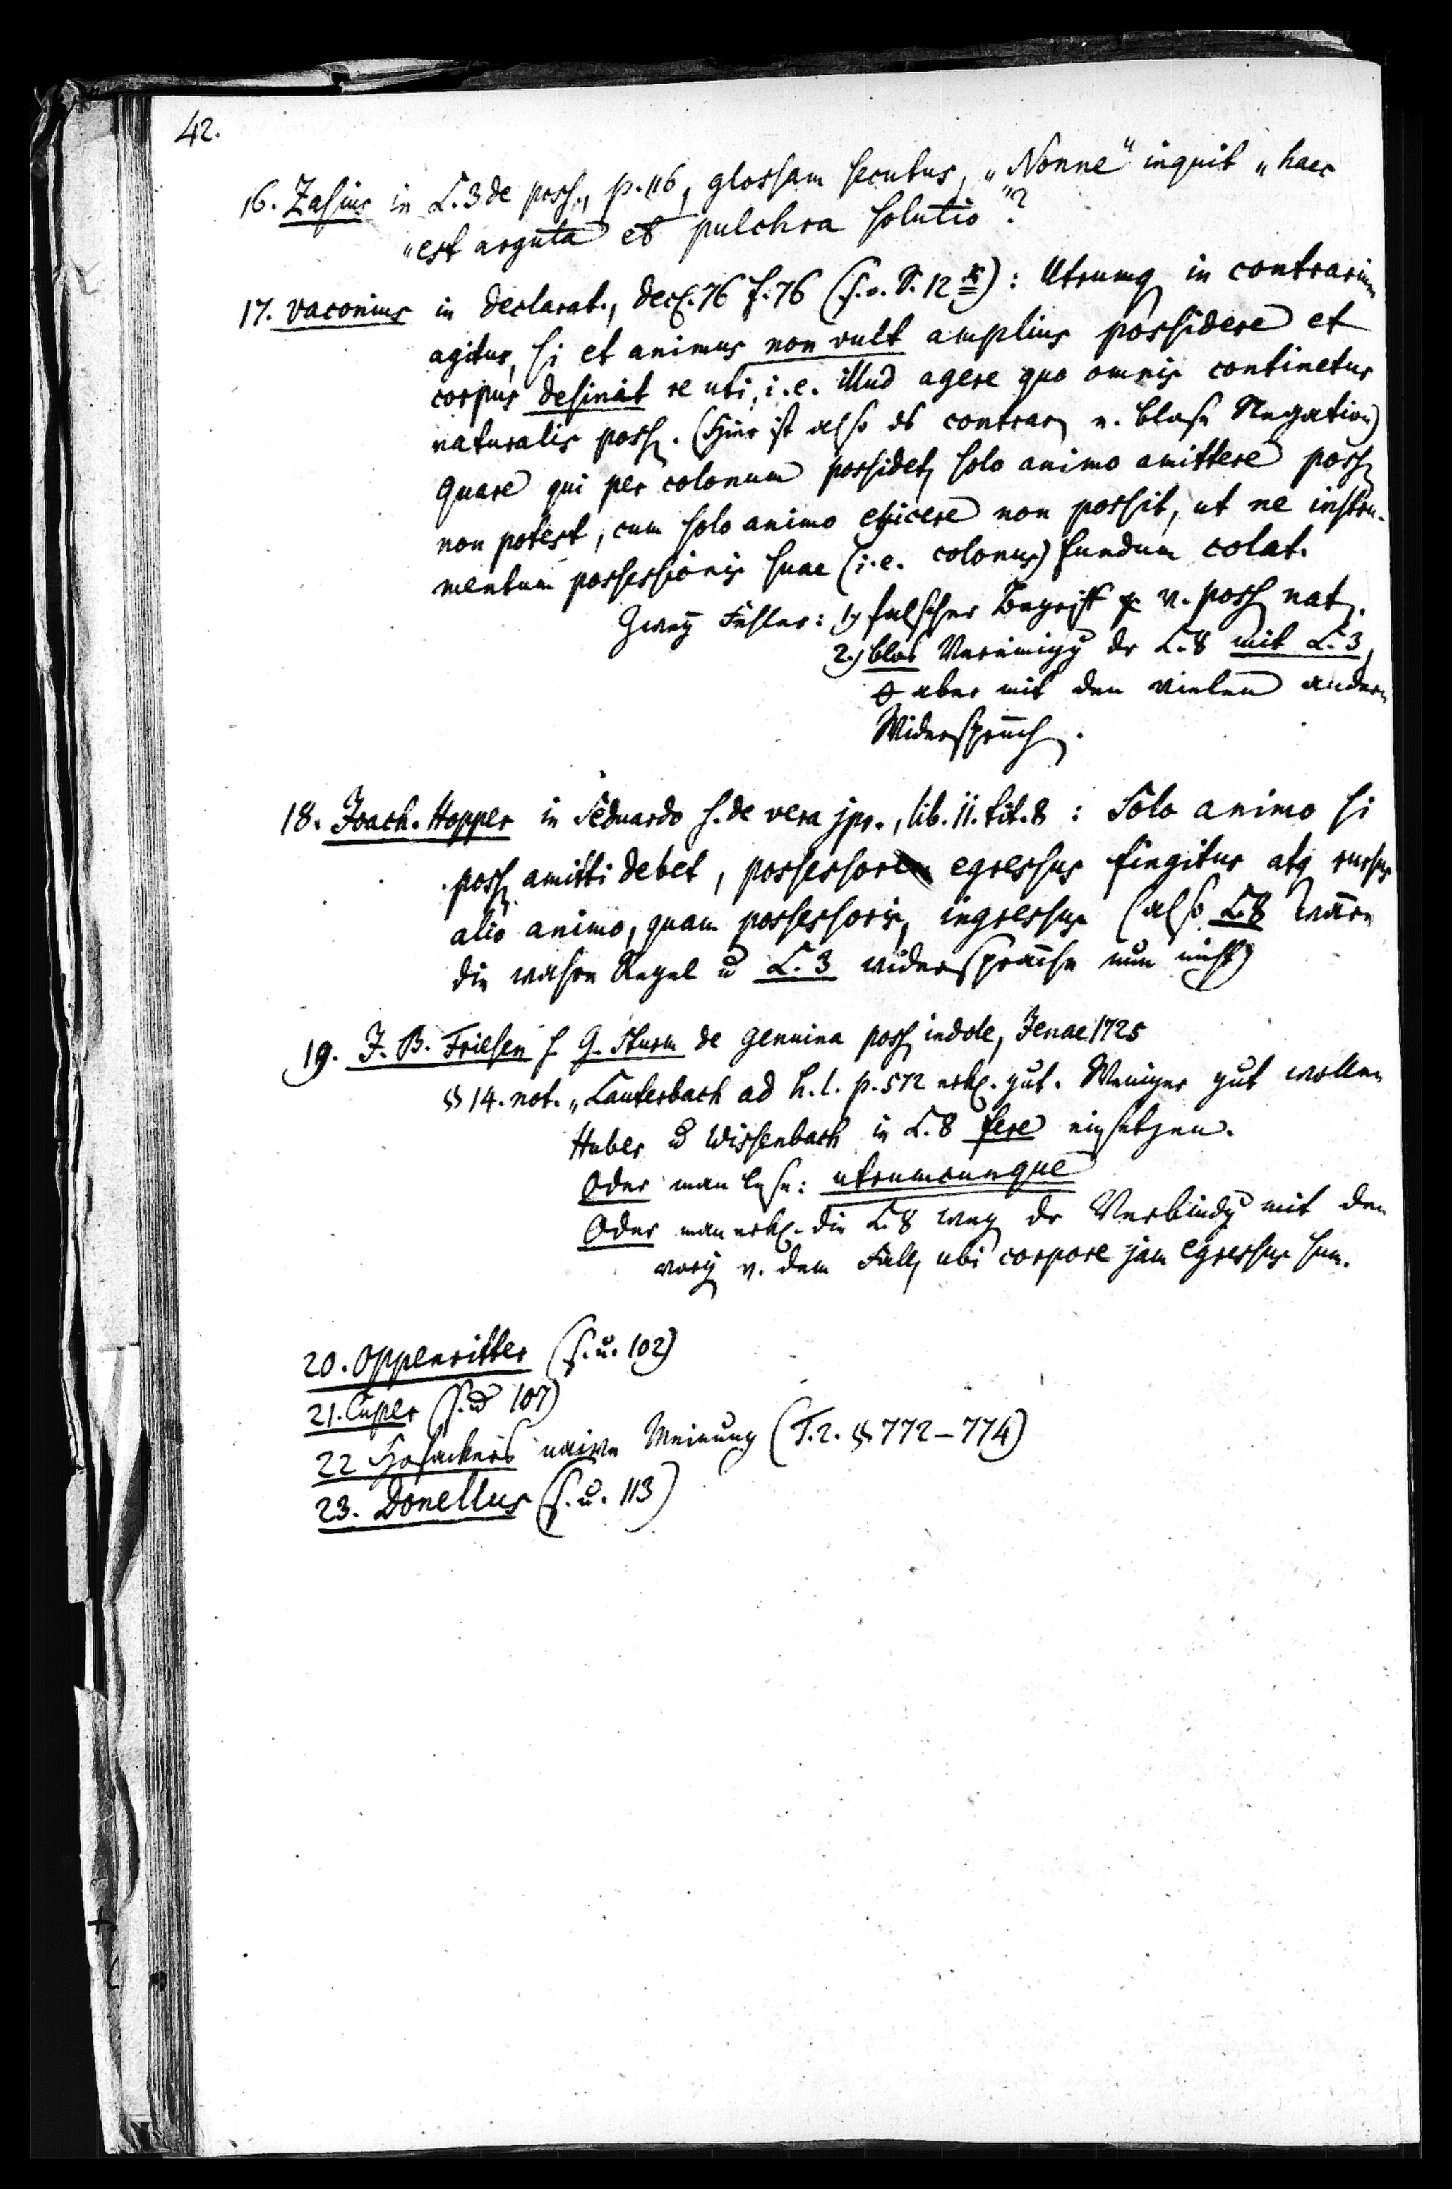 42.
16. Zasius in L. 3 de poss., p. 116, glossam secutus, „Nonne“ inquit „haec
„est arguta et pulchra solutio“?
17. Vaconius in declarat., decl. 76 f. 76 (s. o. S. 12 x): Utrumq in contrarium
agitur, si et animus non vult amplius possidere et
corpus desinat re uti, i.e. illud agere quo omnis continetur
naturalis poss. (Hier ist also ds contrar. e. blose Negation)
quare qui per colonum possidet, solo animo amittere poss
non potest, cum solo animo eijcere non possit, ut ne instru-
mentum possessionis suae (i.e. colonus) fundum colat.
Zwey Fehler: 1) falscher Begriff v. poss nat.
2.) blos Vereinigg dr L. 8 mit L. 3,
aber mit den vielen andern
Widerspruch.
18. Joach. Hopper in Seduardo s. de vera jpr., lib. 11. tit. 8 : Solo animo si
poss amitti debet, possessor egressus fingitur atq rursus
alio animo, quam possessoris, ingressus (also L. 8 wäre
die wahre Regel u L. 3 widerspräche nun nicht)
19. J. B. Friesen s. G. Sturm de genuina poss indole, Jenae 1725
§ 14. not. „Lauterbach ad h. l. p. 572 erkl. gut. Weniger gut wollen
Huber u Wissenbach in L. 8 fere einsetzen.
Oder man lese: utrumcunque
Oder man erkl. die L. 8 weg. dr Verbindg mit den
vorig v. dem Fall, ubi corpore jam egressus sum.
20. Oppenritter (s. u. 102)
21. Cuper (s. u 107)
22 Hofackers naive Meinung (T. 2. §. 772 – 774)
23. Donellus (s. u. 113)